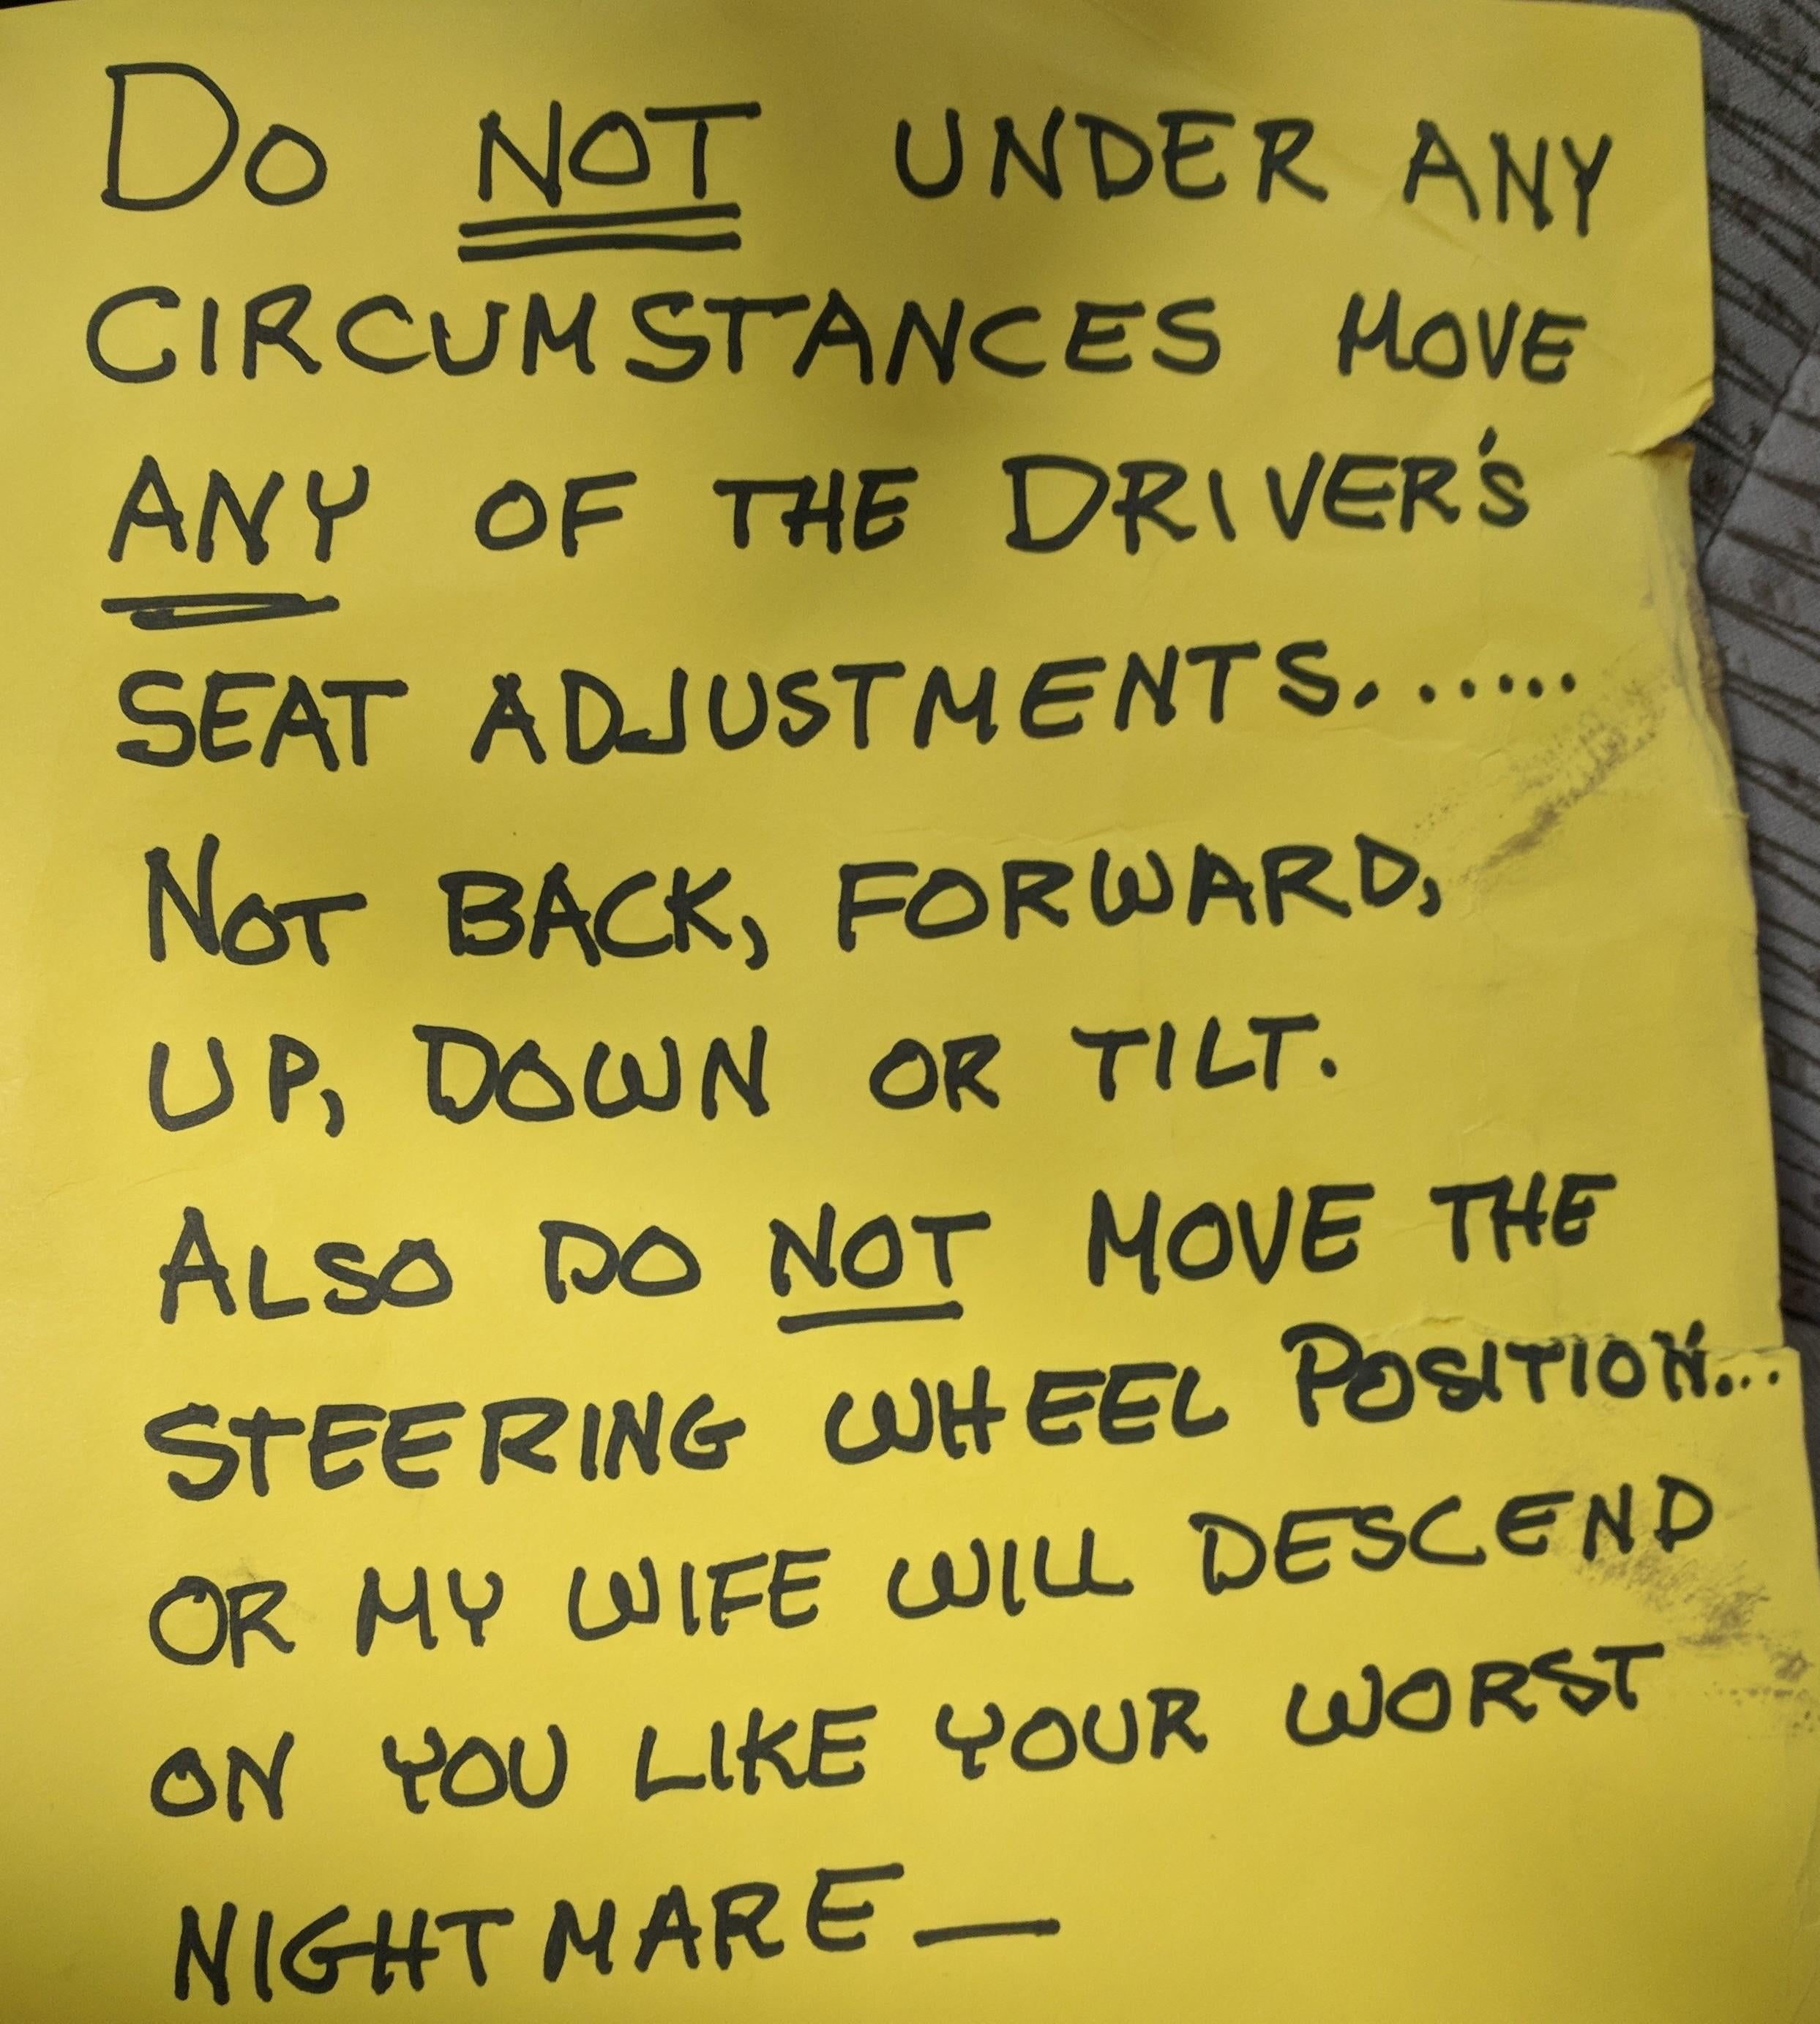 Do NOT UNDER ANY
CIRCUMSTANCES MOVE
ANY OF THE DRIVER'S
SEAT ADJUSTMENTS......
NOT BACK, FORWARD,
UP, DOWN OR TILT.
ALSO DO NOT MOVE THE
STEERING WHEEL POSITION...
OR MY WIFE WILL DESCEND
ON YOU LIKE YOUR WORST
NIGHTMARE—